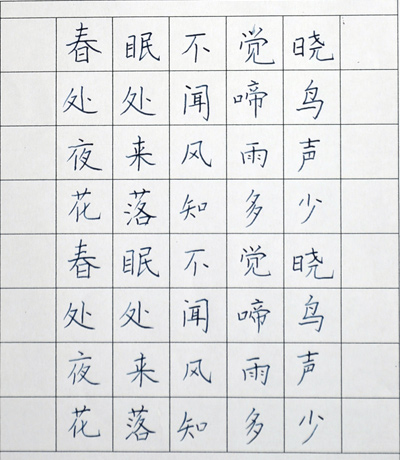 春眠不觉晓
处处闻啼鸟
夜来风雨声
花落知多少
春眠不觉晓
处处闻啼鸟
夜来风雨声
花落知多少